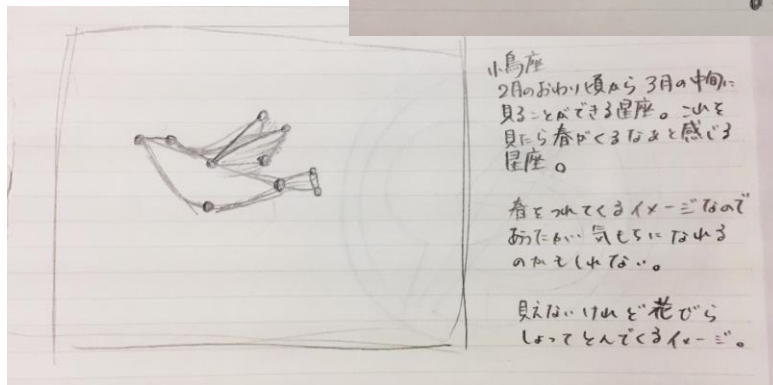 小鳥座
2月のおわり頃から3月の中間に
見ることができる星座。これを
見たら春がくるなぁと感じる
星座。
春をつれてくるイメージなので
あったかい気もちになれる
のかもしれない。
見えないけれど花びら
しょってとんでくるイメージ。